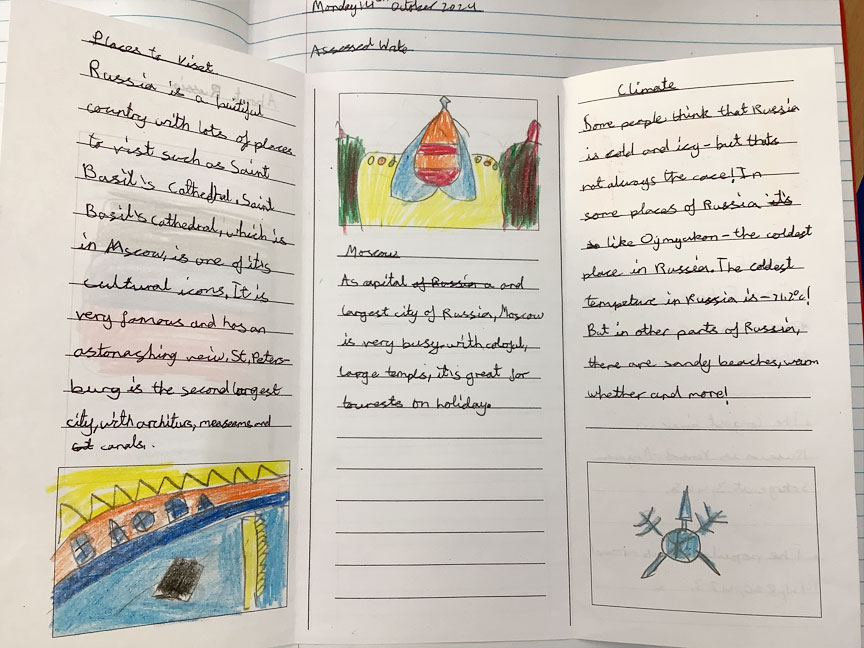 Monday 14th October 2024
Assessed Wake
Places to Viset
Russia is a buitiful
country with lots of places
to vist such as Saint
Basil's Cathedral. Saint
Basil's Cathedral, which is
in Mscow, is one of it's
cultural icons. It is
very famous and has an
astonashing veiw. St. Peters-
burg is the second largest
city, with architurs, measeams and
canals.
Moscow
As capital of Russia a and
largest city of Russia, Moscow
is very busy. with coloful,
large templs, it's great for
tourests on holiday.
Climate
Some people think that Russia
is cold and icy - but thats
not always the case! In
some places of Russia it's
like Ojmyakon - the coldest
place in Russia. The coldest
tempeture in Russia is -71.2°c!
But in other parts of Russia,
there are sandy beaches, warm
whether and more!